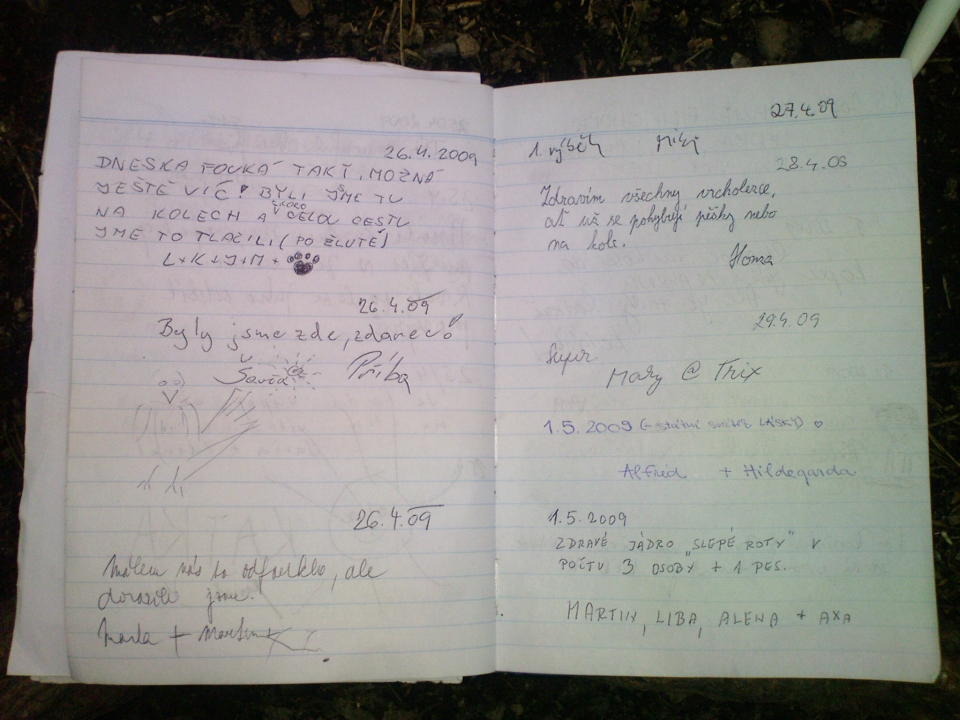 26.4.2009
DNESKA FOUKÁ TAKÉ, MOŽNÁ
JEŠTĚ VÍC! BYLI JSME TU
NA KOLECH A SKORO CELOU CESTU
JSME TO TLAČILI (PO ŽLUTÉ)
L+K+J+M+
26.4.09
Byly jsme zde, zdarevó
Šavča Príba
26.4.09
Málem nás to odfouklo, ale
dorazili jsme.
Marla + Martin K
27.4.09
1. výběh Miky
28.4.09
Zdravím všechny vrcholerce,
ať už se pohybují pěšky nebo
na kole.
Honza
29.4.09
Super
Mary @ Trix
1.5.2009 (= státní svátek LÁSKY) ♡
Alfréd + Hildegarda
1.5.2009
ZDRAVÉ JÁDRO „SLEPÉ ROTY" V
POČTU 3 OSOBY + 1 PES.
MARTIN, LIBA, ALENA + AXA